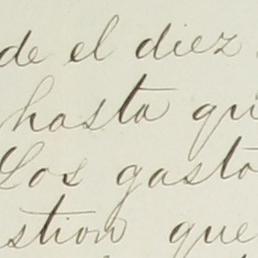 de el diez
hasta qu
Los gasto
stion que